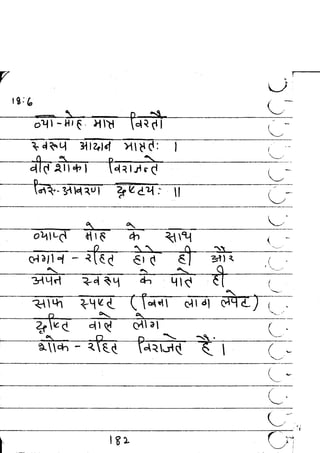 18:6
व्या-मोह मात्र विरतौ
स्वरूप आदान मात्रतः ।
वीत शोका विराजन्ते
निर्-आवरण दृष्टयः ॥
व्याप्त मोह के साथ
लगाव-रहित होते ही और
अपने स्वरूप के पाते ही
साफ स्पष्ट (बिना लाग लपेट)
दृष्टि वाले लोग
शोक-रहित विराजते हैं ।
182